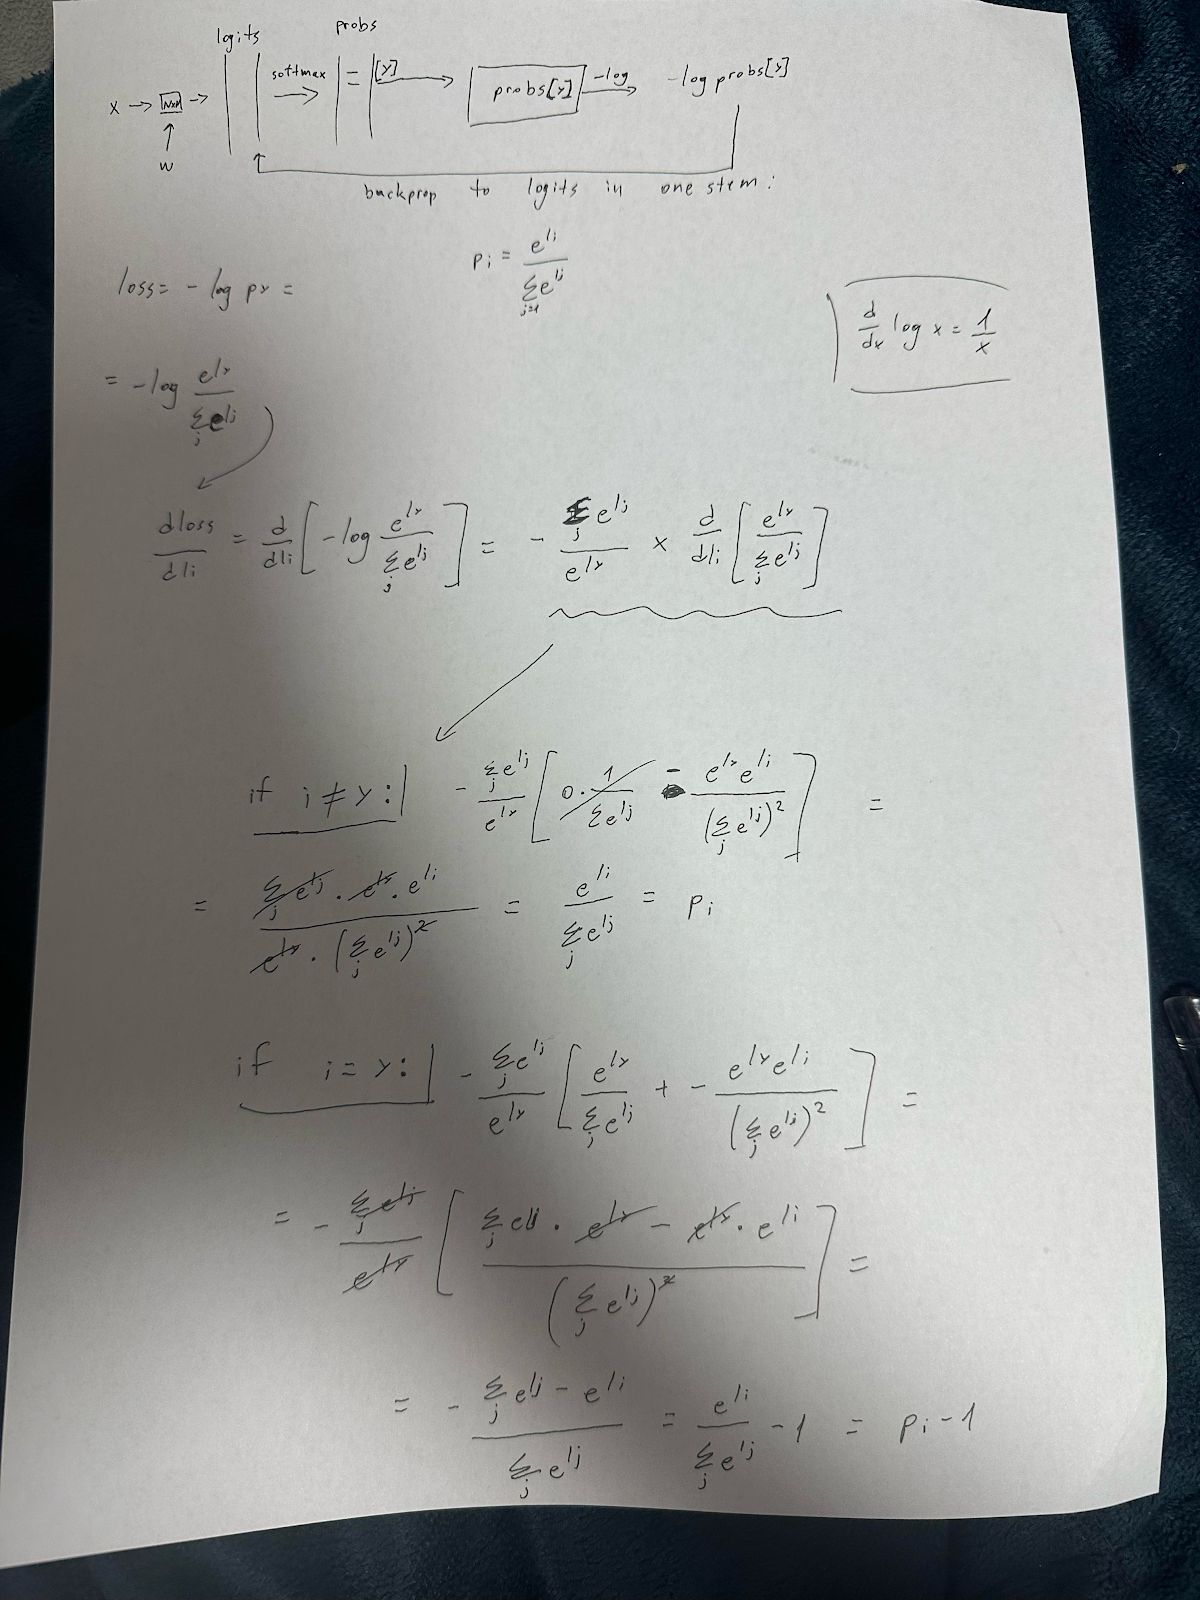 logits probs
x → NxM → softmax = [y] probs[y] -log → -log probs[y]
w
backprop to logits in one stem:
p_i = e^{l_i} / Σ_{j=1} e^{l_j}
loss = - log p_y =
d/dx log x = 1/x
= -log e^{l_y} / Σ_j e^{l_j}
dloss/dl_i = d/dl_i [ -log e^{l_y} / Σ_j e^{l_j} ] = - Σ_j e^{l_j} / e^{l_y} × d/dl_i [ e^{l_y} / Σ_j e^{l_j} ]
if i ≠ y: - Σ_j e^{l_j} / e^{l_y} [ 0 · 1 / Σ e^{l_j} - e^{l_y} e^{l_i} / (Σ_j e^{l_j})^2 ] =
= Σ_j e^{l_j} · e^{l_y} · e^{l_i} / e^{l_y} · (Σ_j e^{l_j})^2 = e^{l_i} / Σ_j e^{l_j} = p_i
if i = y: - Σ_j e^{l_j} / e^{l_y} [ e^{l_y} / Σ_j e^{l_j} + - e^{l_y} e^{l_i} / (Σ_j e^{l_j})^2 ] =
= - Σ_j e^{l_j} / e^{l_y} [ Σ_j e^{l_j} · e^{l_y} - e^{l_y} · e^{l_i} / (Σ_j e^{l_j})^2 ] =
= - Σ_j e^{l_j} - e^{l_i} / Σ_j e^{l_j} = e^{l_i} / Σ_j e^{l_j} - 1 = p_i - 1